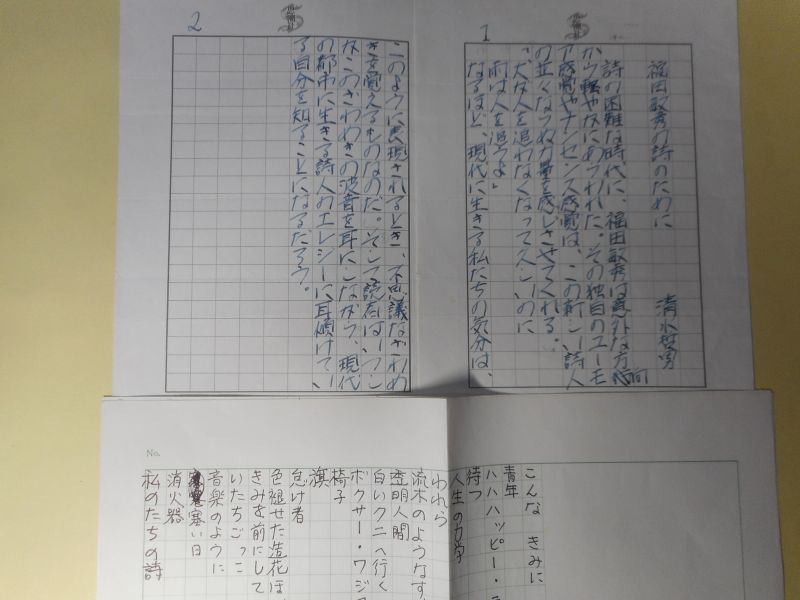 1
福田敏秀の詩のために
清水哲男
詩の困難な時代に、福田敏秀は意外な方向
から軽やかにあらわれた。その独自のユーモ
ア感覚やナンセンス感覚は、この新しい詩人
の並々ならぬ力量を感じさせてくれる。
「犬が人を追わなくなって久しいのに
雨は人を追うよ」
なるほど、現代に生きる私たちの気分は、
2
このように表現されるとき、不思議なざわめ
きを覚えるものなのだ。そして読者は、
このざわめきの波音を耳にしながら、現代
の都市に生きる詩人のエレジーに耳傾けてい
る自分を知ることになるだろう。
No.
こんな きみに
青年
ハハハッピー・
待つ
人生の力学
われら
流木のようなす
透明人間
白いクニへ行く
ボクサー・ワジ
椅子
旗
怠け者
色褪せた造花ほ
きみを前にして
いたちごっこ
音楽のように
寒い日
消火器
私のたちの詩